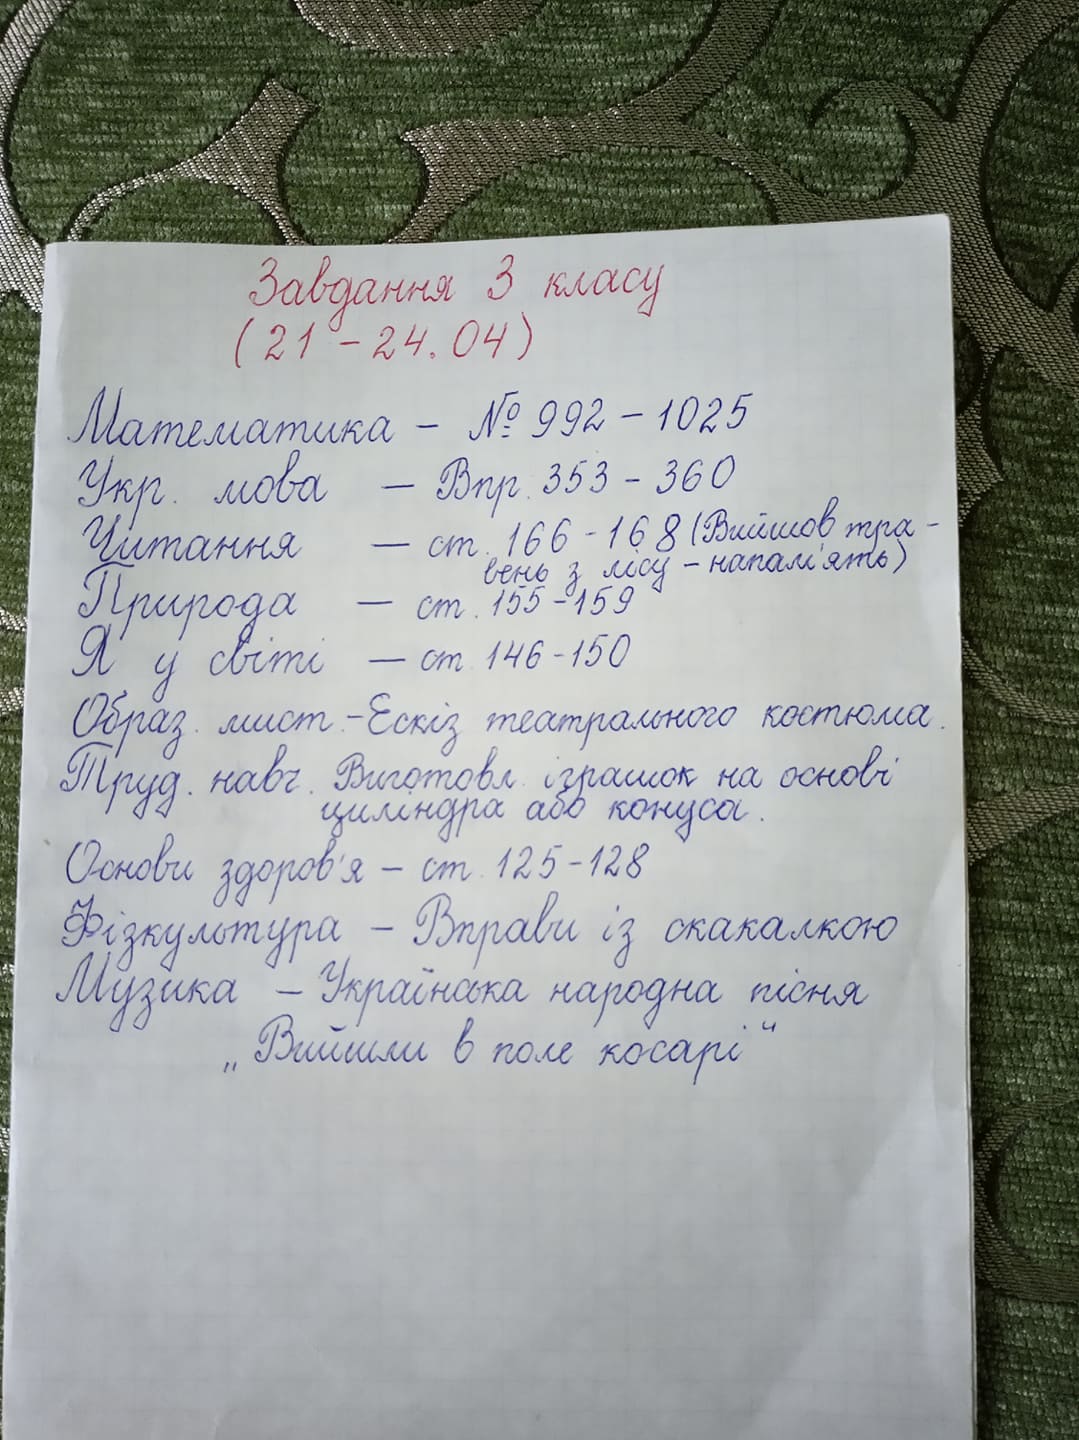 Завдання 3 класу
(21 – 24.04)
Математика – № 992 – 1025
Укр. мова – Впр. 353 – 360
Читання – ст. 166 – 168 (Вийшов тра-
вень з лісу – напам'ять)
Природа – ст. 155 – 159
Я у світі – ст 146 – 150
Образ. мист. – Ескіз театрального костюма.
Труд. навч. Виготовл. іграшок на основі
циліндра або конуса.
Основи здоров'я – ст. 125 – 128
Фізкультура – Вправи із скакалкою
Музика – Українська народна пісня
„Вийшли в поле косарі"